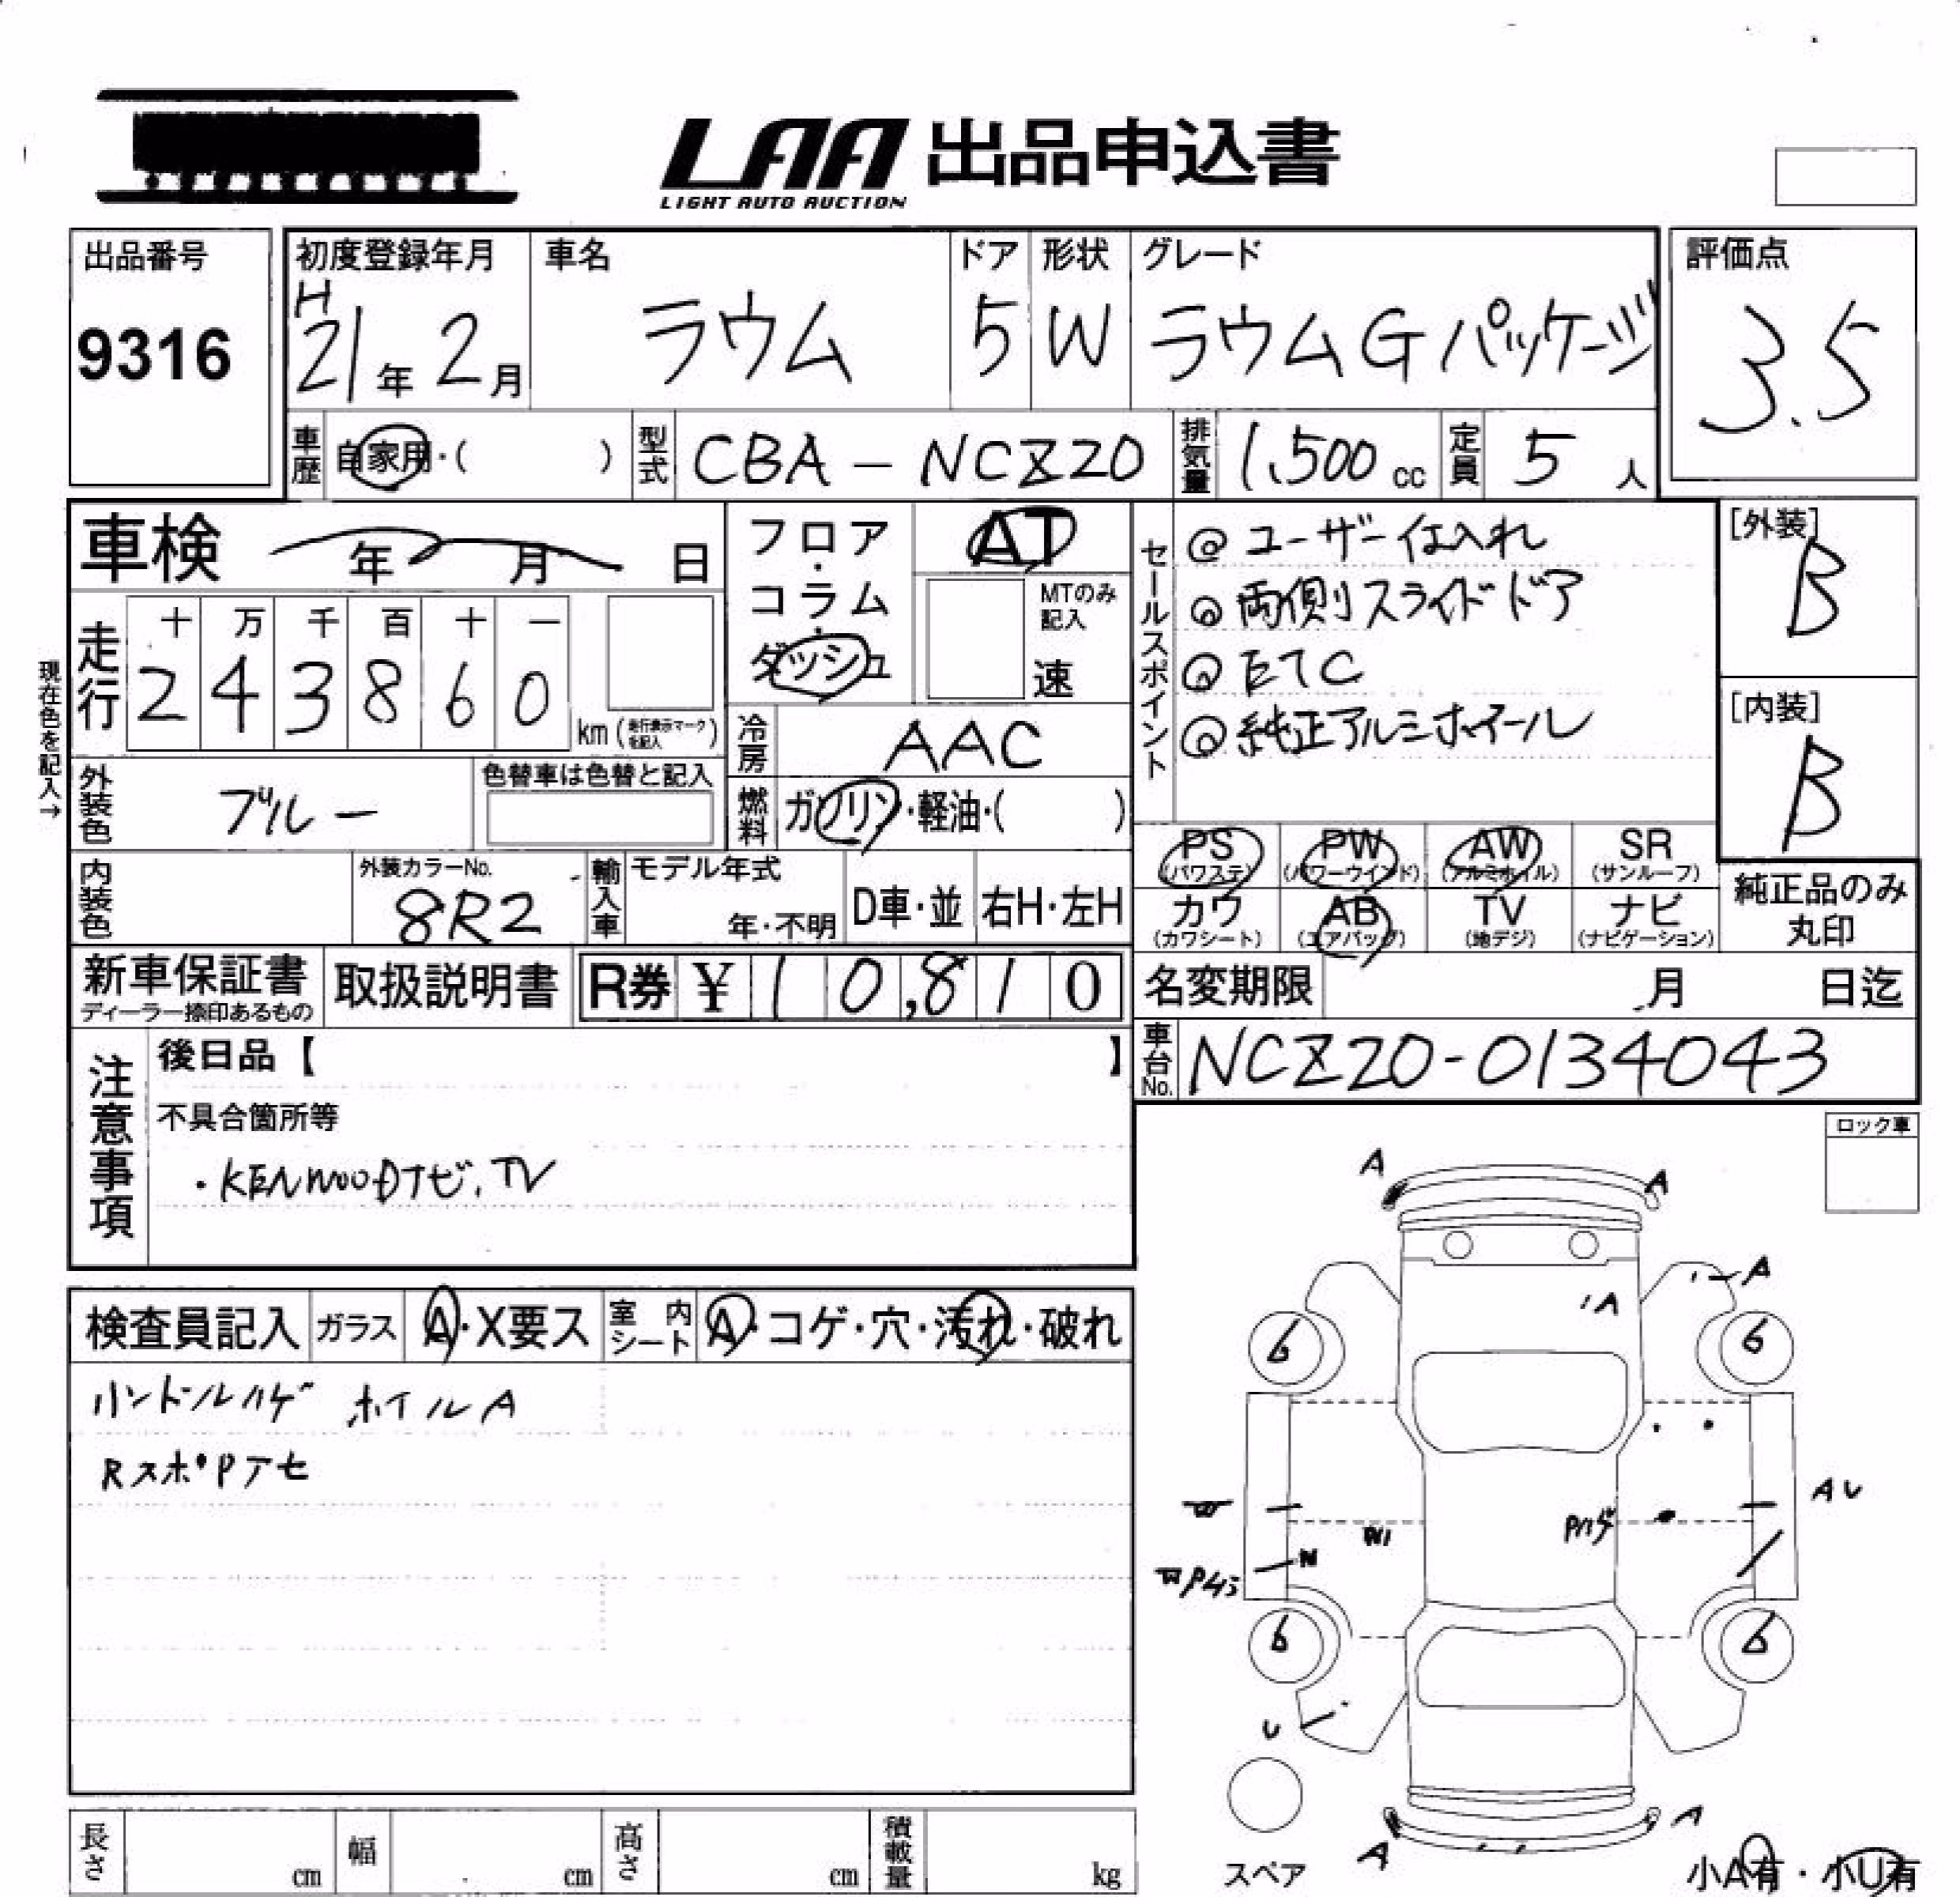 LAA 出品申込書
LIGHT AUTO AUCTION
出品番号
9316
初度登録年月
H21年2月
車名
ラウム
ドア
5
形状
W
グレード
ラウムGパッケージ
評価点
3.5
車歴 自家用・( )
型式 CBA-NCZ20
排気量 1,500cc
定員 5人
車検 年 月 日
フロア・コラム・ダッシュ
AT
MTのみ記入
速
セールスポイント
@ ユーザー仕入れ
@ 両側スライドドア
@ ETC
@ 純正アルミホイール
[外装]
B
[内装]
B
現在色を記入→
走行
十 万 千 百 十 一
2 4 3 8 6 0
km(走行表示マークを記入)
冷房 AAC
外装色 ブルー
色替車は色替と記入
燃料 ガソリン・軽油・( )
PS (パワステ)
PW (パワーウインド)
AW (アルミホイル)
SR (サンルーフ)
カワ (カワシート)
AB (エアバッグ)
TV (地デジ)
ナビ (ナビゲーション)
純正品のみ丸印
内装色
外装カラーNo.
8R2
輸入車
モデル年式
年・不明
D車・並
右H・左H
新車保証書
ディーラー捺印あるもの
取扱説明書
R券 ¥ 10,810
名変期限 月 日迄
車台No. NCZ20-0134043
注意事項
後日品【 】
不具合箇所等
・KENWOODナビ,TV
ロック車
検査員記入
ガラス A・X要ス
室内シート A・コゲ・穴・汚れ・破れ
ハンドルハゲ ホイルA
RスポPアセ
A
A
A
A
6
6
AU
Pハゲ
6
6
U
A
A
スペア
小A有・小U有
長さ cm
幅 cm
高さ cm
積載量 kg